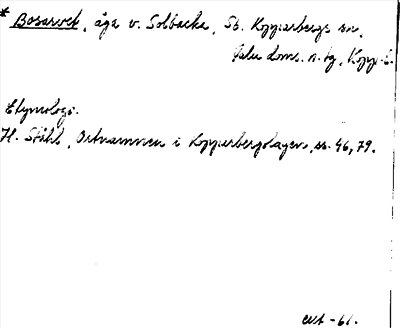 * Bosarvet, åga v. Solbacka, St. Kopparbergs sn,
Falu doms. n. tg, Kopp. l.
Etymologi.
H. Ståhl, Ortnamnen i Kopparbergslagen, ss. 46, 79.
-61.